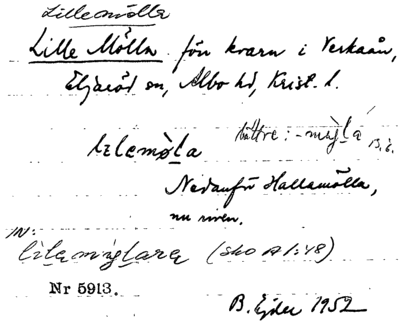 Lillemölla
Lille Mölla fön kvarn i Verkaån,
Eljaröd sn, Albo hd, Krist. l.
lilemø̀la bättre: -mø̀lá B.E.
Nedanför Hallamölla,
nu riven.
IN:
(Sko A1:48)
Nr 5913.
B. Ejder 1952